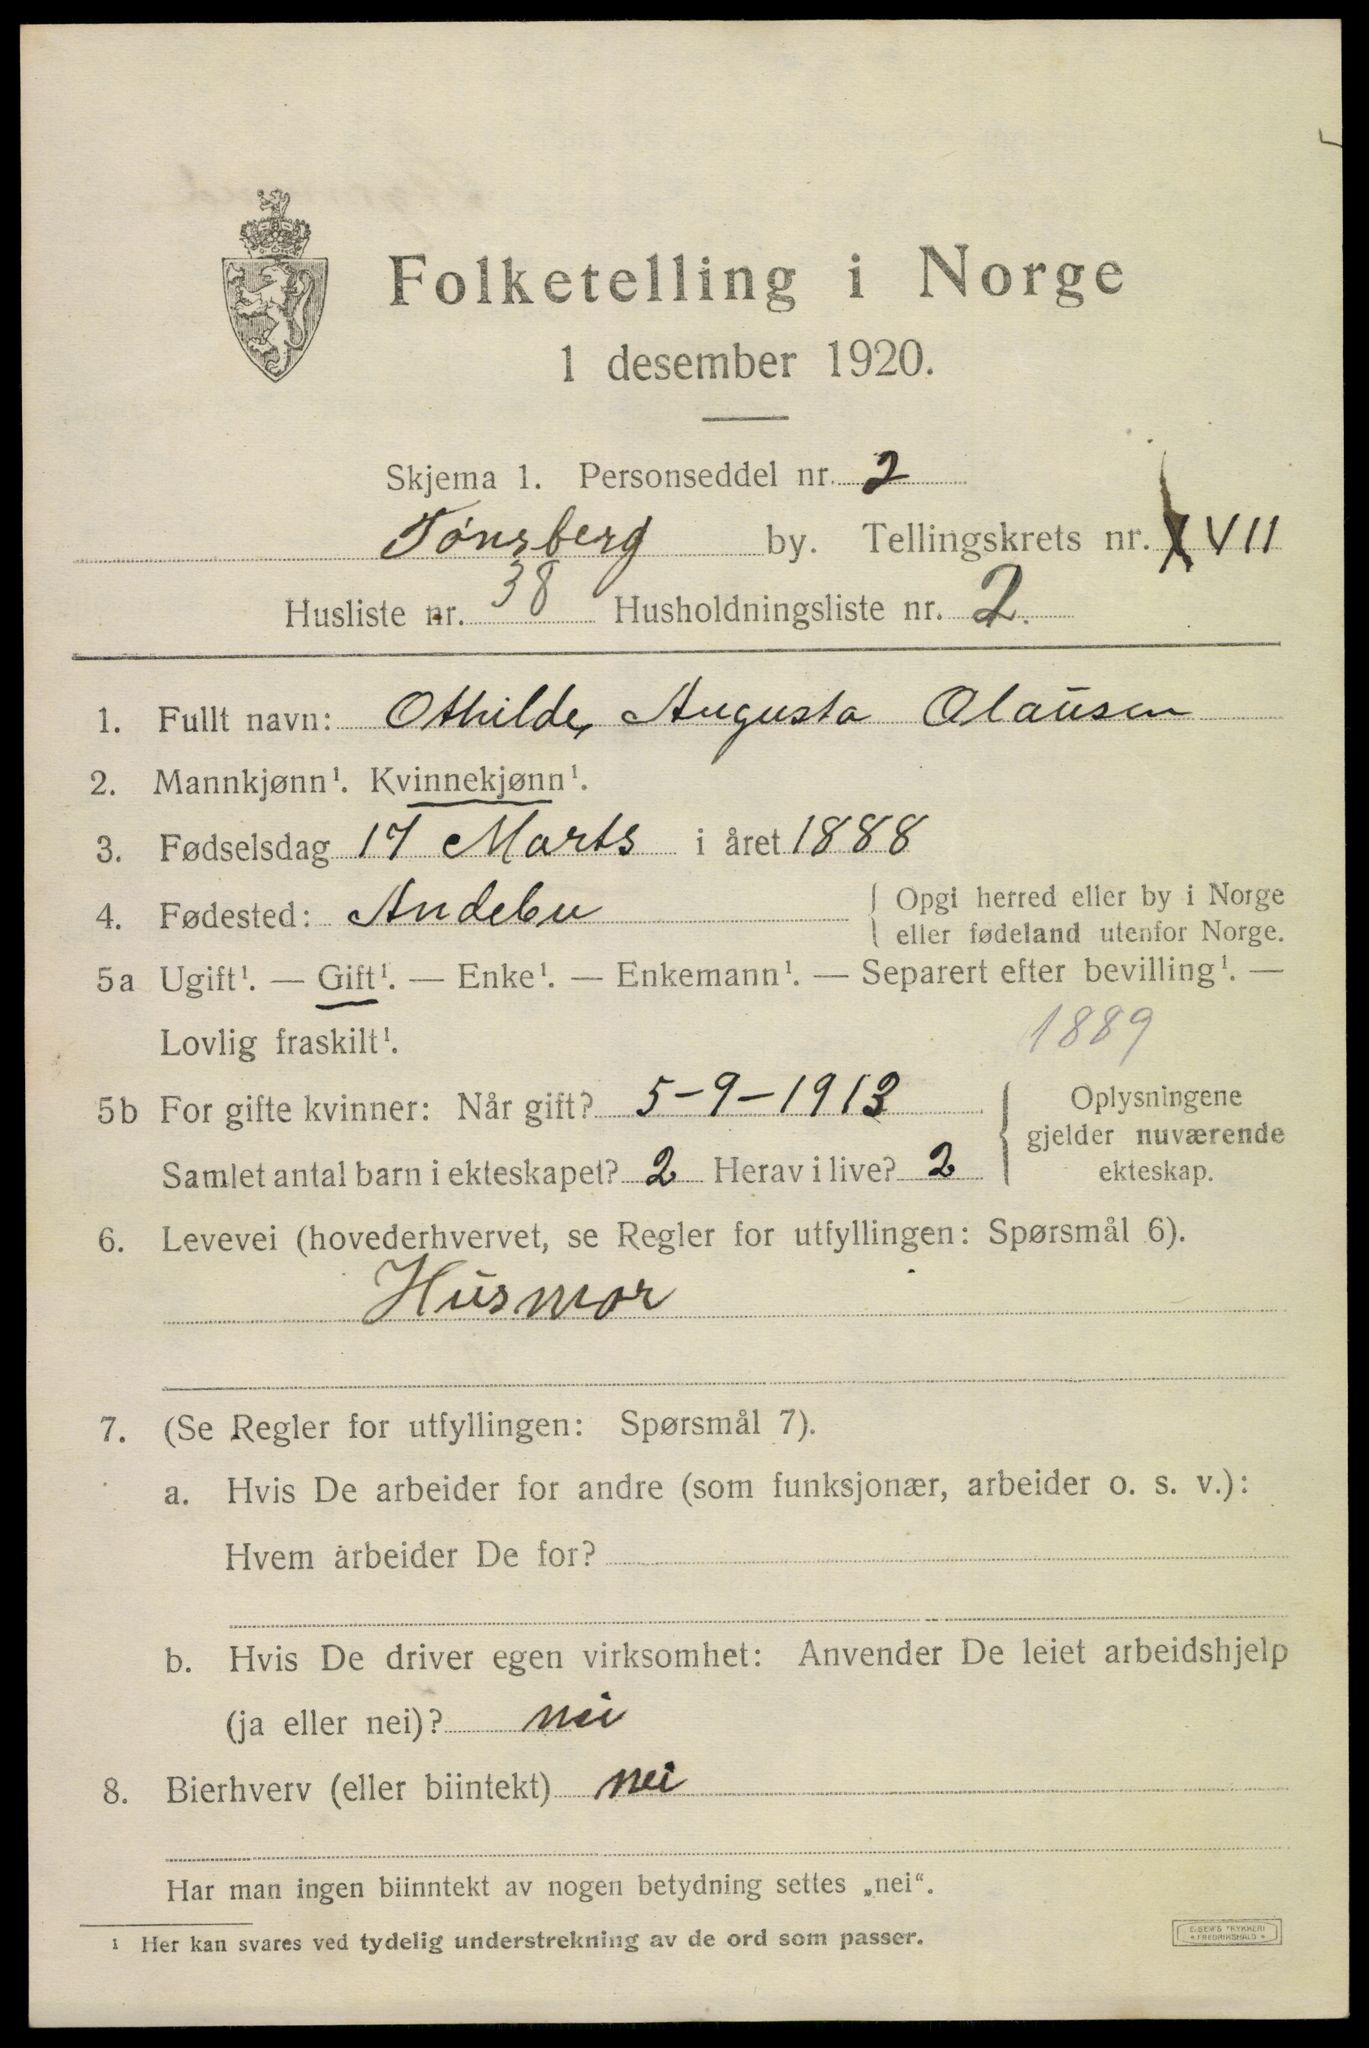 Folketelling i Norge
1 desember 1920.
Skjema 1. Personseddel nr. 2
Tønsberg by. Tellingskrets nr. XVII
Husliste nr. 38 Husholdningsliste nr. 2.
1. Fullt navn: Othilde Augusta Olausen
2. Mannkjønn¹. Kvinnekjønn¹.
3. Fødselsdag 17 Marts i året 1888
4. Fødested: Andebu { Opgi herred eller by i Norge
eller fødeland utenfor Norge.
5a Ugift¹. — Gift¹. — Enke¹. — Enkemann¹. — Separert efter bevilling¹. —
Lovlig fraskilt¹. 1889
5b For gifte kvinner: Når gift? 5-9-1913 { Oplysningene
gjelder nuværende
Samlet antal barn i ekteskapet? 2 Herav i live? 2 ekteskap.
6. Levevei (hovederhvervet, se Regler for utfyllingen: Spørsmål 6).
Husmor
7. (Se Regler for utfyllingen: Spørsmål 7).
a. Hvis De arbeider for andre (som funksjonær, arbeider o. s. v.):
Hvem arbeider De for?
b. Hvis De driver egen virksomhet: Anvender De leiet arbeidshjelp
(ja eller nei)? nei
8. Bierhverv (eller biintekt) nei
Har man ingen biinntekt av nogen betydning settes „nei“.
¹ Her kan svares ved tydelig understrekning av de ord som passer.